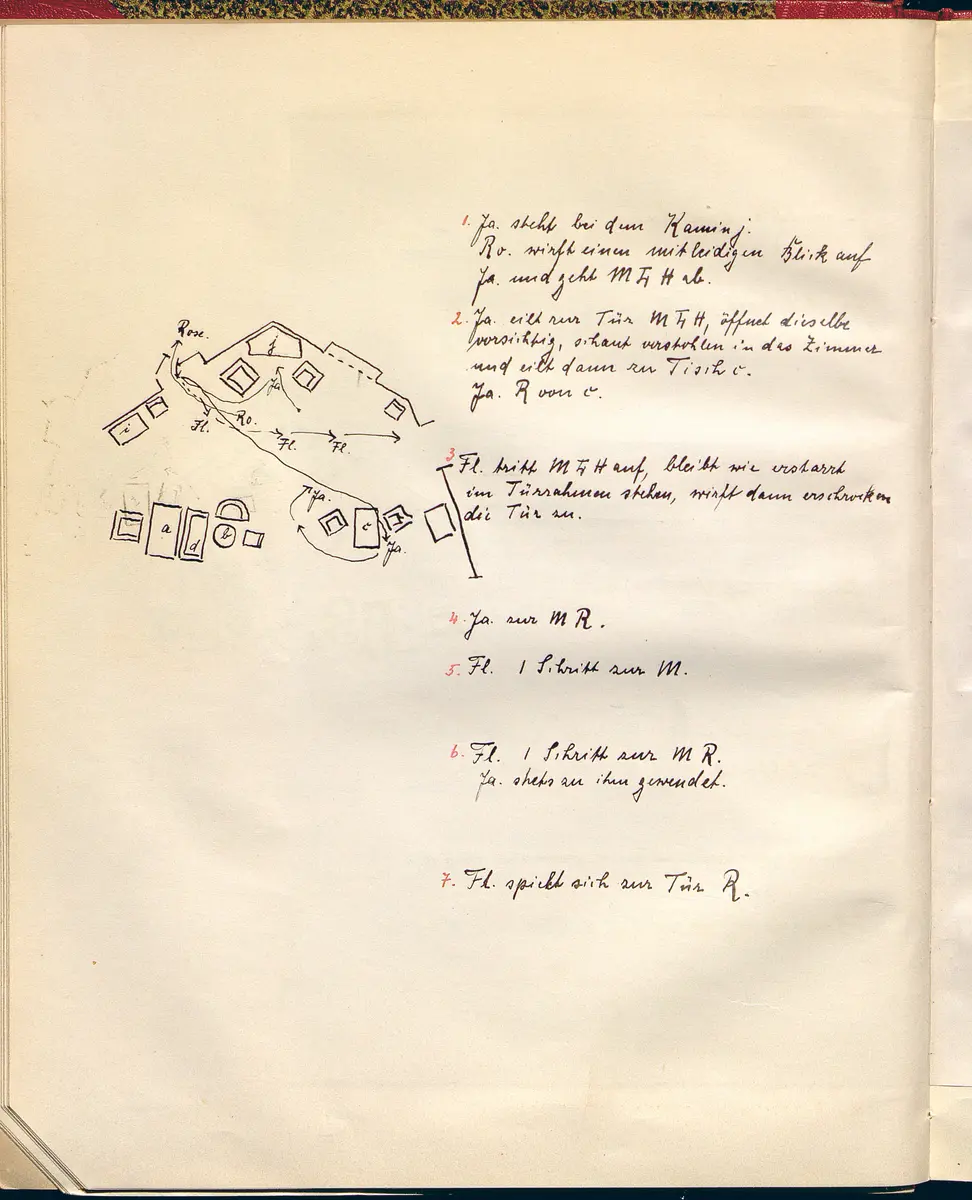 1. Ja. steht bei dem Kamin j.
Ro. wirft einen mitleidigen Blick auf
Ja. und geht M T H ab.
2. Ja. eilt zur Tür M T H, öffnet dieselbe
vorsichtig, schaut verstohlen in das Zimmer
und eilt dann zu Tisch c.
Ja. R von c.
3 Fl. tritt M T H auf, bleibt wie erstarrt
im Türrahmen stehen, wirft dann erschrocken
die Tür zu.
4. Ja. zur M R.
5. Fl. 1 Schritt zur M.
6. Fl. 1 Schritt zur M R.
Ja. stets zu ihm gewendet.
7. Fl. spielt sich zur Tür R.
Rose.
j
Ja
i
Fl.
Ro.
Fl.
Fl.
Ja.
a
d
b
c
Ja.